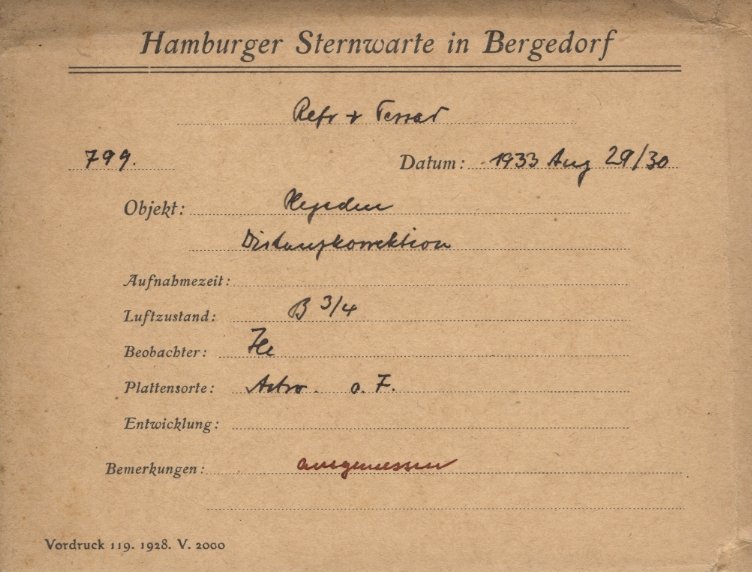 Hamburger Sternwarte in Bergedorf
Refr + Tessar
799. Datum: 1933 Aug 29/30
Objekt: Plejaden
Distanzkorrektion
Aufnahmezeit:
Luftzustand: B 3/4
Beobachter:
Plattensorte: Astro. o. F.
Entwicklung:
Bemerkungen: ausgemessen
Vordruck 119. 1928. V. 2000